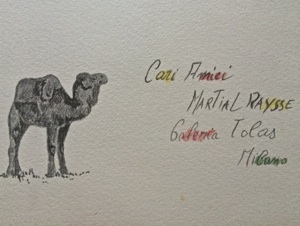 Cari Amici
MARTIAL RAYSSE
Galleria Tolas
Milano